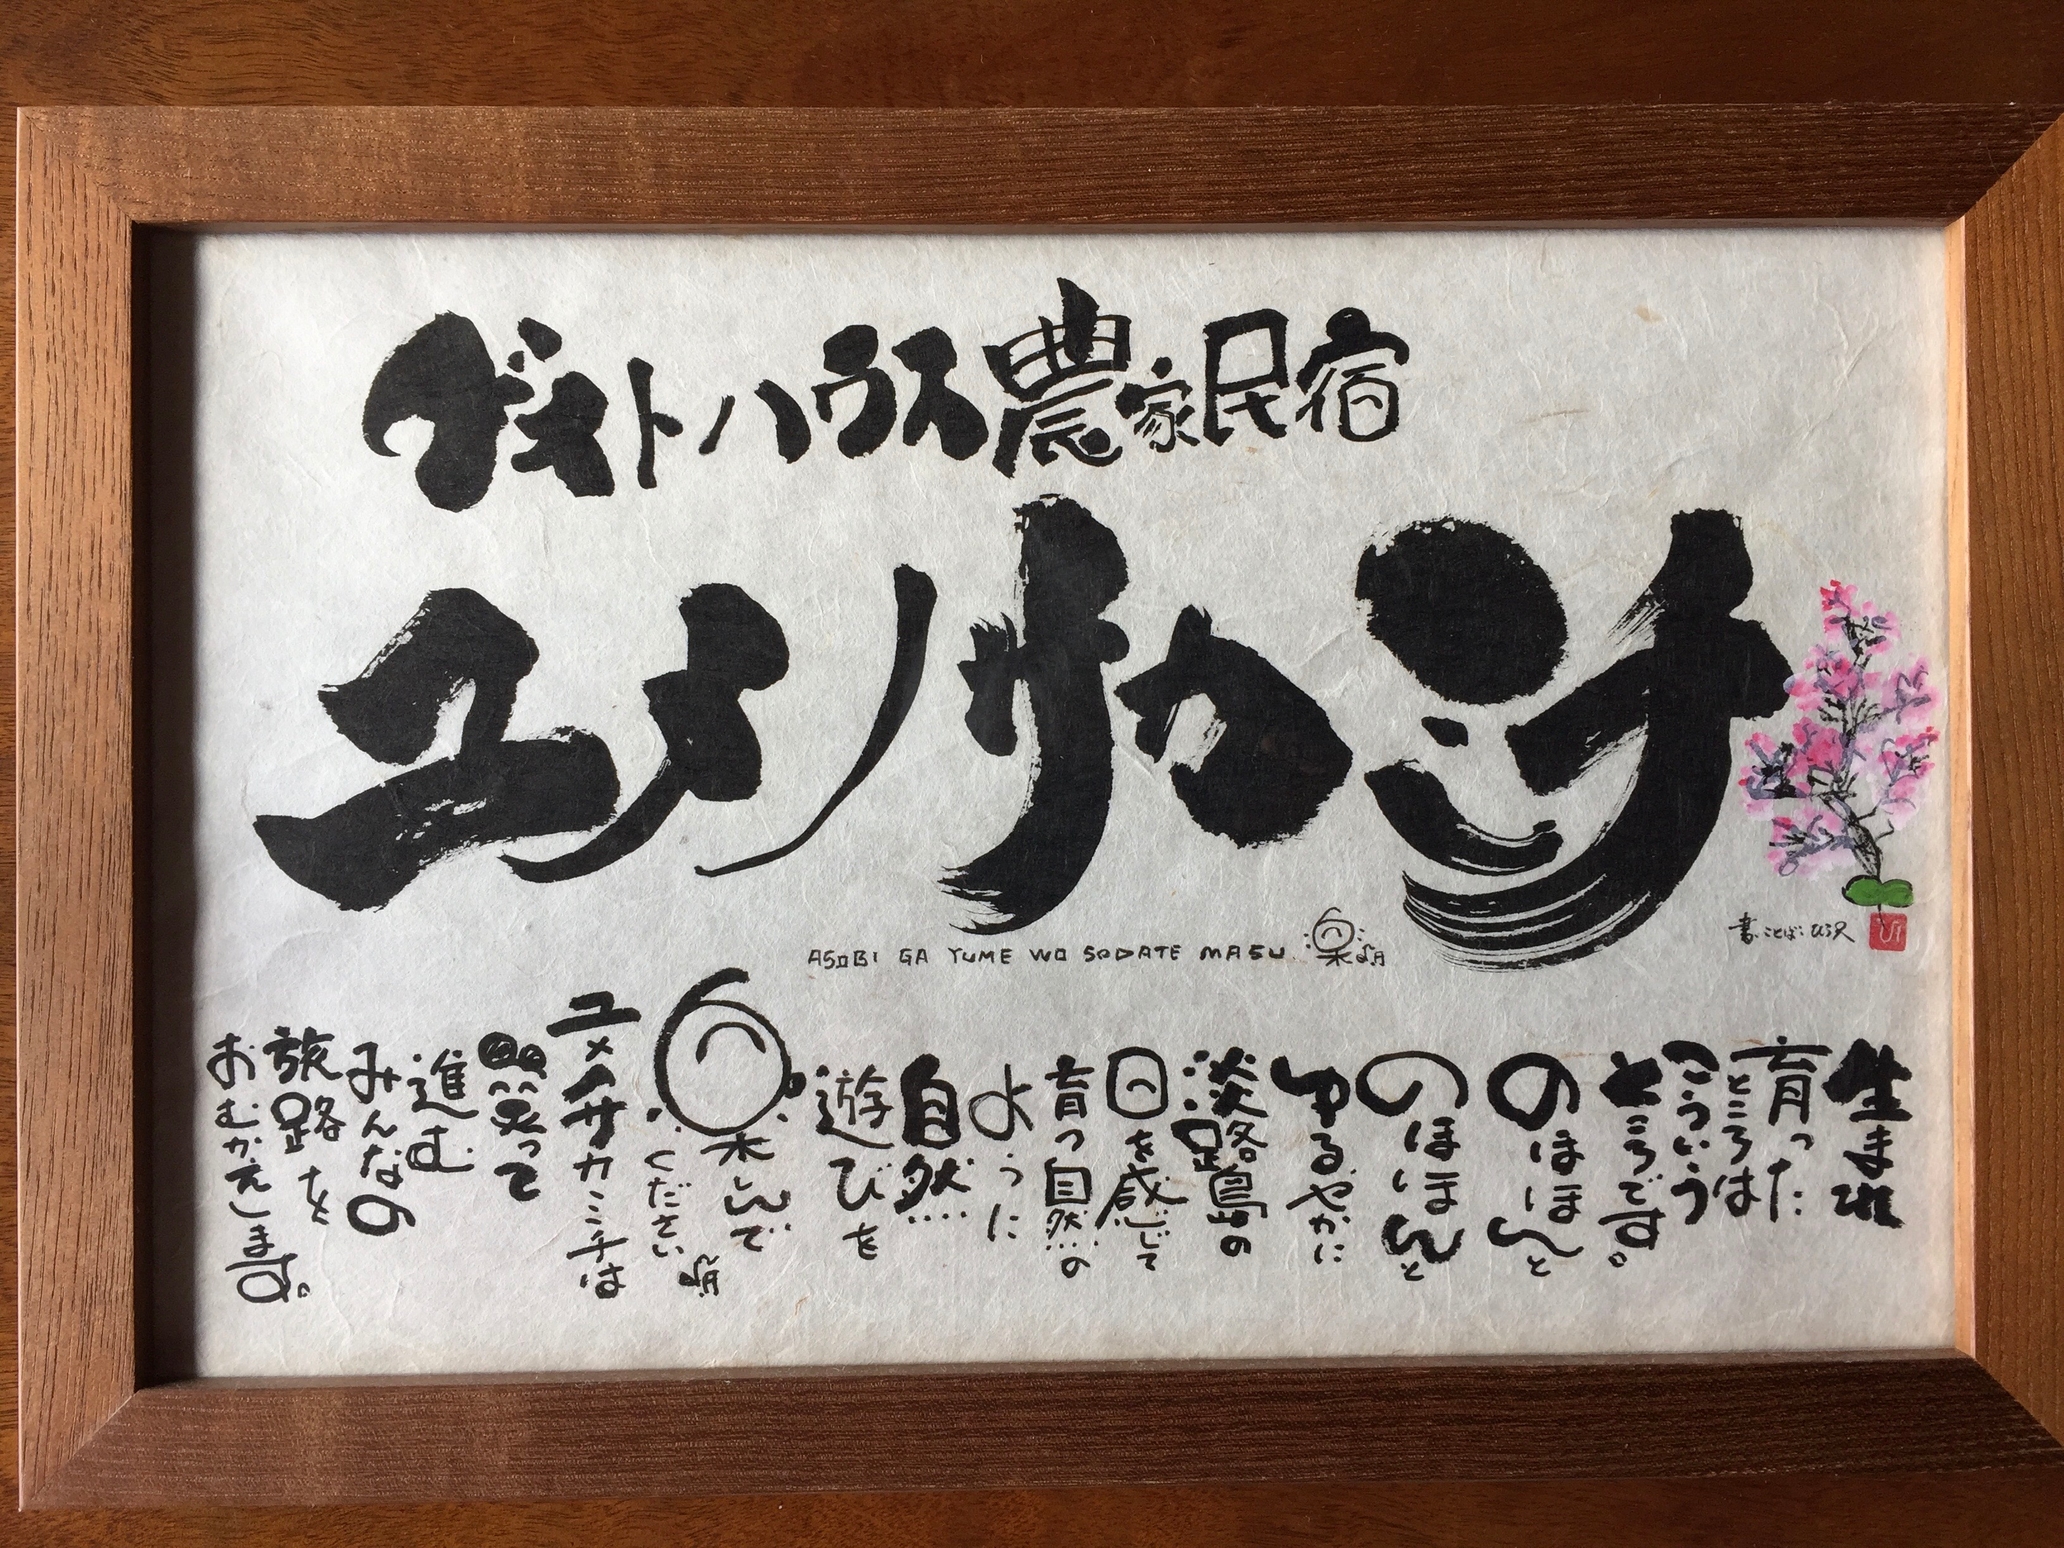 ゲストハウス農家民宿
ユメノサカミチ
ASOBI GA YUME WO SODATE MASU
書・ことば:
生まれ
育った
ところは
こういう
ところです。
のほほんと
のほほんと
ゆるやかに
淡路島の
日を感じて
育つ自然の
ように
自然
遊びを
楽しんで
ください
ユメサカミチは
笑って
進む
みんなの
旅路を
おむかえします。